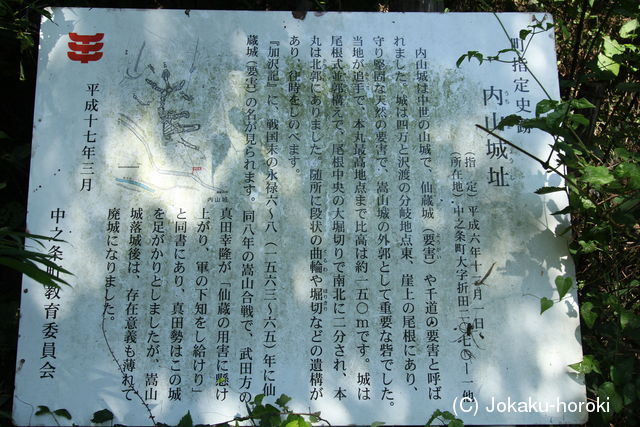 町指定史跡
内山城址
うちやまじょうし
(指 定) 平成六年十一月一日
(所在地) 中之条町大字折田二〇七〇ー一他
内山城は中世の山城で、仙蔵城(要害)や千道の要害と呼ば
れました。城は四万と沢渡の分岐地点東、崖上の尾根にあり、
守り堅固な天然の要害で、嵩山城の外郭として重要な砦でした。
当地が追手で、本丸最高地点まで比高は約一五〇mです。城は
尾根式並郭構えで、尾根中央の大堀切りで南北に二分され、本
丸は北郭にありました。随所に段状の曲輪や堀切などの遺構が
あり、往時をしのべます。
『加沢記』に、戦国末の永禄六～八(一五六三～六五)年に仙
蔵城(要害)の名が見られます。同八年の嵩山合戦で、武田方の
真田幸隆が「仙蔵の用害に懸け
上がり、軍の下知をし給けり」
と同書にあり、真田勢はこの城
を足がかりとしましたが、嵩山
城落城後は、存在意義も薄れて
廃城になりました。
内山城
平成十七年三月
中之条町教育委員会
(C) Jokaku-horoki